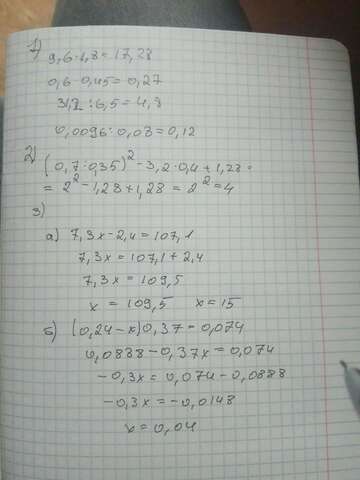 1) 9,6·1,8=17,28
0,6·0,45=0,27
31,2:6,5=4,8
0,0096:0,08=0,12
2) (0,7:0,35)²-3,2·0,4+1,28=
=2²-1,28+1,28=2²=4
3)
а) 7,3x-2,4=107,1
7,3x=107,1+2,4
7,3x=109,5
x=109,5 x=15
б) (0,24-x)0,37=0,074
0,0888-0,37x=0,074
-0,3x=0,074-0,0888
-0,3x=-0,0148
x=0,04